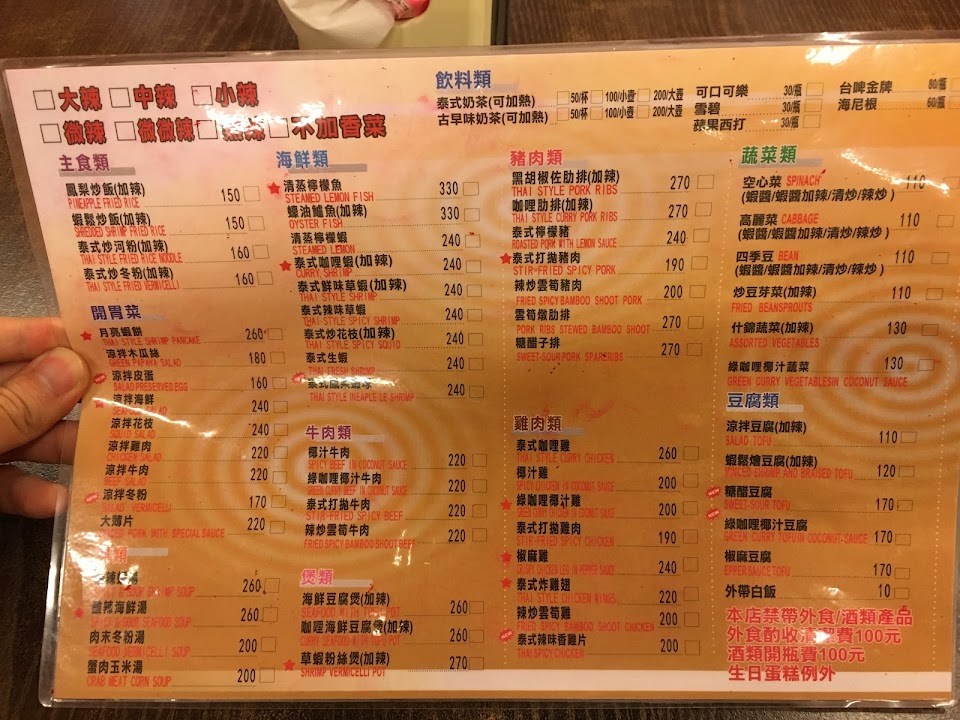 大辣 中辣 小辣
微辣 微微辣 不加香菜
飲料類
泰式奶茶(可加熱) 50/杯 100/小壺 200/大壺
古早味奶茶(可加熱) 50/杯 100/小壺 200/大壺
可口可樂 30/瓶
雪碧 30/瓶
蘋果西打 30/瓶
台啤金牌 80/瓶
海尼根 60/瓶
主食類
鳳梨炒飯(加辣) 150
PINEAPPLE FRIED RICE
蝦鬆炒飯(加辣) 150
SHREDDED SHRIMP FRIED RICE
泰式炒河粉(加辣) 160
THAI STYLE FRIED RICE NOODLE
泰式炒冬粉(加辣) 160
THAI STYLE FRIED VERMICELLI
開胃菜
月亮蝦餅 260
THAI STYLE SHRIMP PANCAKE
涼拌木瓜絲 180
GREEN PAPAYA SALAD
涼拌皮蛋 160
SALAD PRESERVED EGG
涼拌海鮮 240
SEAFOOD SALAD
涼拌花枝 240
SQUID SALAD
涼拌雞肉 220
CHICKEN SALAD
涼拌牛肉 220
BEEF SALAD
涼拌冬粉 170
SALAD VERMICELLI
大薄片 220
SLICED PORK WITH SPECIAL SAUCE
類
260
SOUP SHRIMP SOUP
酸辣海鮮湯 260
SPICY & SOUR SEAFOOD SOUP
肉末冬粉湯 200
SEAFOOD VERMICELLI SOUP
蟹肉玉米湯 200
CRAB MEAT CORN SOUP
海鮮類
清蒸檸檬魚 330
STEAMED LEMON FISH
蠔油鱸魚(加辣) 330
OYSTER FISH
清蒸檸檬蝦 240
STEAMED LEMON
泰式咖哩蝦(加辣) 240
CURRY SHRIMP
泰式鮮味草蝦(加辣) 240
THAI STYLE SHRIMP
泰式辣味草蝦 240
THAI-STYLE SPICY SHRIMP
泰式炒花枝(加辣) 240
THAI STYLE SPICY SQUID
泰式生蝦 240
THAI FRESH SHRIMP
泰式鳳梨蝦球 240
THAI STYLE INEAPLE LE SHRIMP
牛肉類
椰汁牛肉 220
SPICY BEEF IN COCONUT SAUCE
綠咖哩椰汁牛肉 220
GREEN CURRY BEEF IN COCONUT SAUCE
泰式打拋牛肉 220
STIR-FRIED SPICY BEEF
辣炒雲筍牛肉 220
FRIED SPICY BAMBOO SHOOT BEEF
煲類
海鮮豆腐煲(加辣) 260
SEAFOOD WITH TOFU POT
咖哩海鮮豆腐煲(加辣) 260
CURRY SEAFOOD WITH TOFU POT
草蝦粉絲煲(加辣) 270
SHRIMP VERMICELLI POT
豬肉類
黑胡椒佐肋排(加辣) 270
THAI STYLE PORK RIBS
咖哩肋排(加辣) 270
THAI STYLE CURRY PORK RIBS
泰式檸檬豬 240
ROASTED PORK WITH LEMON SAUCE
泰式打拋豬肉 190
STIR-FRIED SPICY PORK
辣炒雲筍豬肉 200
FRIED SPICY BAMBOO SHOOT PORK
雲筍燉肋排 270
PORK RIBS STEWED BAMBOO SHOOT
糖醋子排 270
SWEET-SOUR PORK SPARERIBS
雞肉類
泰式咖哩雞 260
THAI STYLE CURRY CHICKEN
椰汁雞 200
SPICY CHICKEN IN COCONUT SAUCE
綠咖哩椰汁雞 200
GREEN CURRY CHICKEN IN COCONUT SAUCE
泰式打拋雞肉 190
STIR-FRIED SPICY CHICKEN
椒麻雞 240
CRISPY CHICKEN LEG IN PEPPER SAUCE
泰式炸雞翅 220
THAI STYLE CHICKEN WINGS
辣炒雲筍雞 200
FRIED SPICY BAMBOO SHOOT CHICKEN
泰式辣味香雞片 200
THAI SPICY CHICKEN
蔬菜類
空心菜 SPINACH 110
(蝦醬/蝦醬加辣/清炒/辣炒)
高麗菜 CABBAGE 110
(蝦醬/蝦醬加辣/清炒/辣炒)
四季豆 BEAN 110
(蝦醬/蝦醬加辣/清炒/辣炒)
炒豆芽菜(加辣) 110
FRIED BEANSPROUTS
什錦蔬菜(加辣) 130
ASSORTED VEGETABLES
綠咖哩椰汁蔬菜 130
GREEN CURRY VEGETABLESIN COCONUT SAUCE
豆腐類
涼拌豆腐(加辣) 110
SALAD TOFU
蝦鬆燴豆腐(加辣) 120
MINCED SHRIMP AND BRAISED TOFU
糖醋豆腐 170
SWEET-SOUR TOFU
綠咖哩椰汁豆腐 170
GREEN CURRY TOFU IN COCONUT-SAUCE
椒麻豆腐 170
EPPER SAUCE TOFU
外帶白飯 10
本店禁帶外食/酒類產品
外食酌收清潔費100元
酒類開瓶費100元
生日蛋糕例外